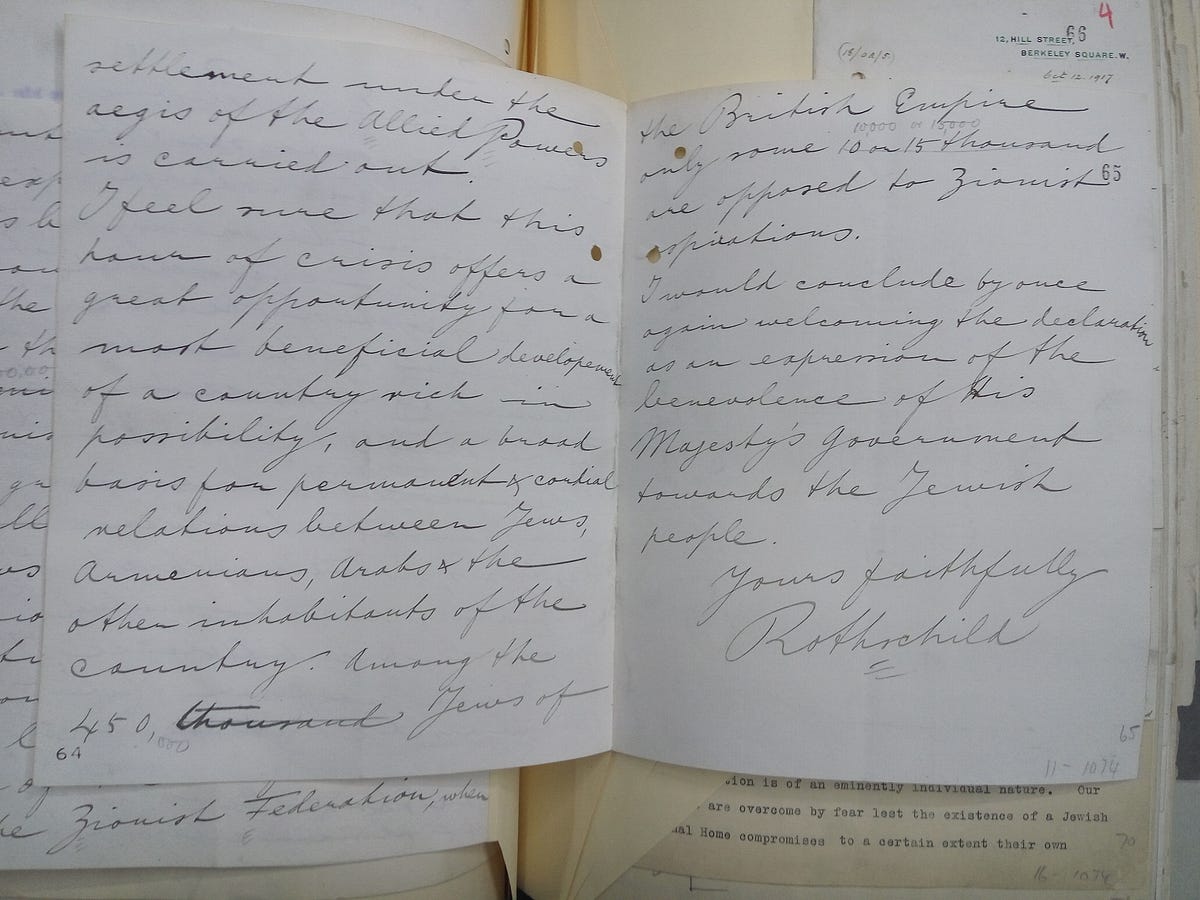 settlement under the
aegis of the Allied Powers
is carried out.
I feel sure that this
hour of crisis offers a
great opportunity for a
most beneficial developement
of a country rich in
possibility, and a broad
basis for permanent & cordial
relations between Jews,
Armenians, Arabs & the
other inhabitants of the
country. Among the
450, thousand Jews of
000
64
he Zionist Federation, when
4
66
12, HILL STREET,
BERKELEY SQUARE. W.
Oct 12. 1917
the British Empire
10,000 or 15,000
only some 10 or 15 thousand
65
are opposed to Zionist
aspirations.
I would conclude by once
again welcoming the declaration
as an expression of the
benevolence of His
Majesty's Government
towards the Jewish
people.
Yours faithfully
Rothschild
65
11-1074
tion is of an eminently individual nature. Our
are overcome by fear lest the existence of a Jewish
nal Home compromises to a certain extent their own
70
16-1074